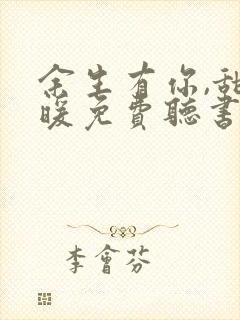 余生有你,甜
暖免費聽書
李會芬